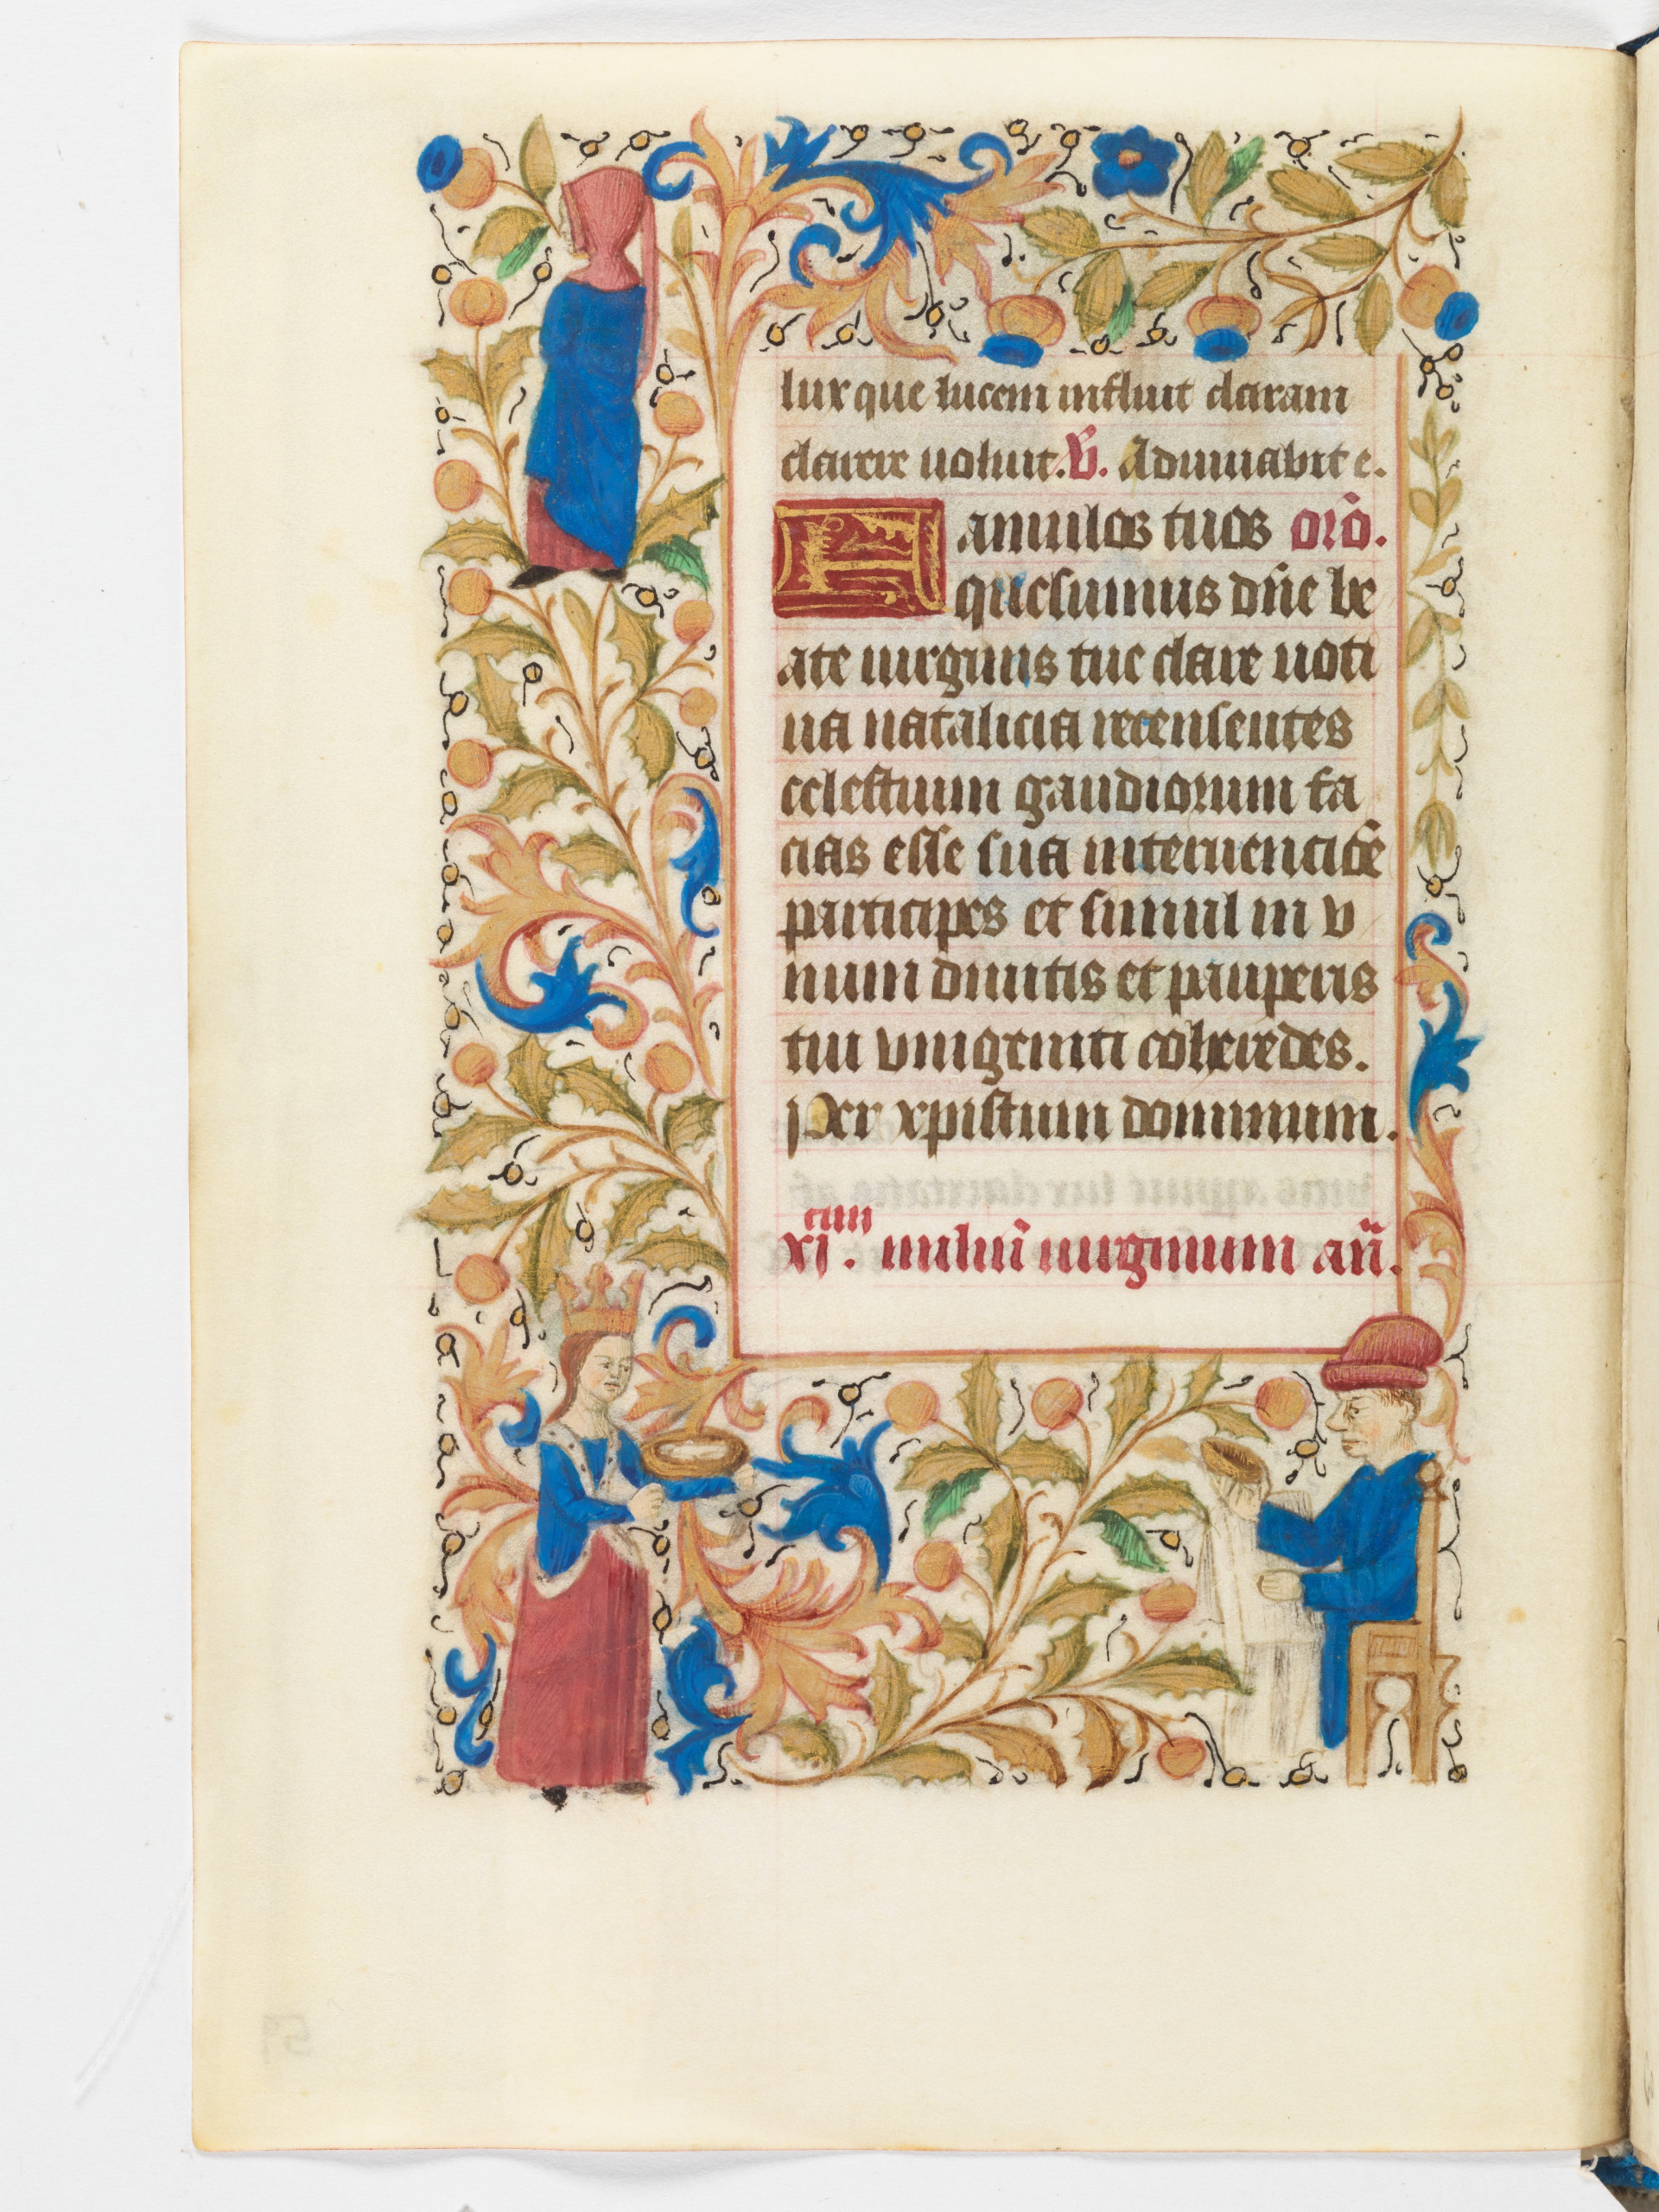 lux que lucem influit claram
clarere uoluit. V̄. Adiuuabit e.
Famulos tuos orō.
quesumus dn̄e be
ate uirginis tue clare uoti
ua natalicia recensentes
celestium gaudiorum fa
cias esse sua interuencioē
participes et simul in v
num diuitis et pauperis
tui vnigeniti coheredes.
Per xpistum dominum.
xj. miliū uirginum an̄.